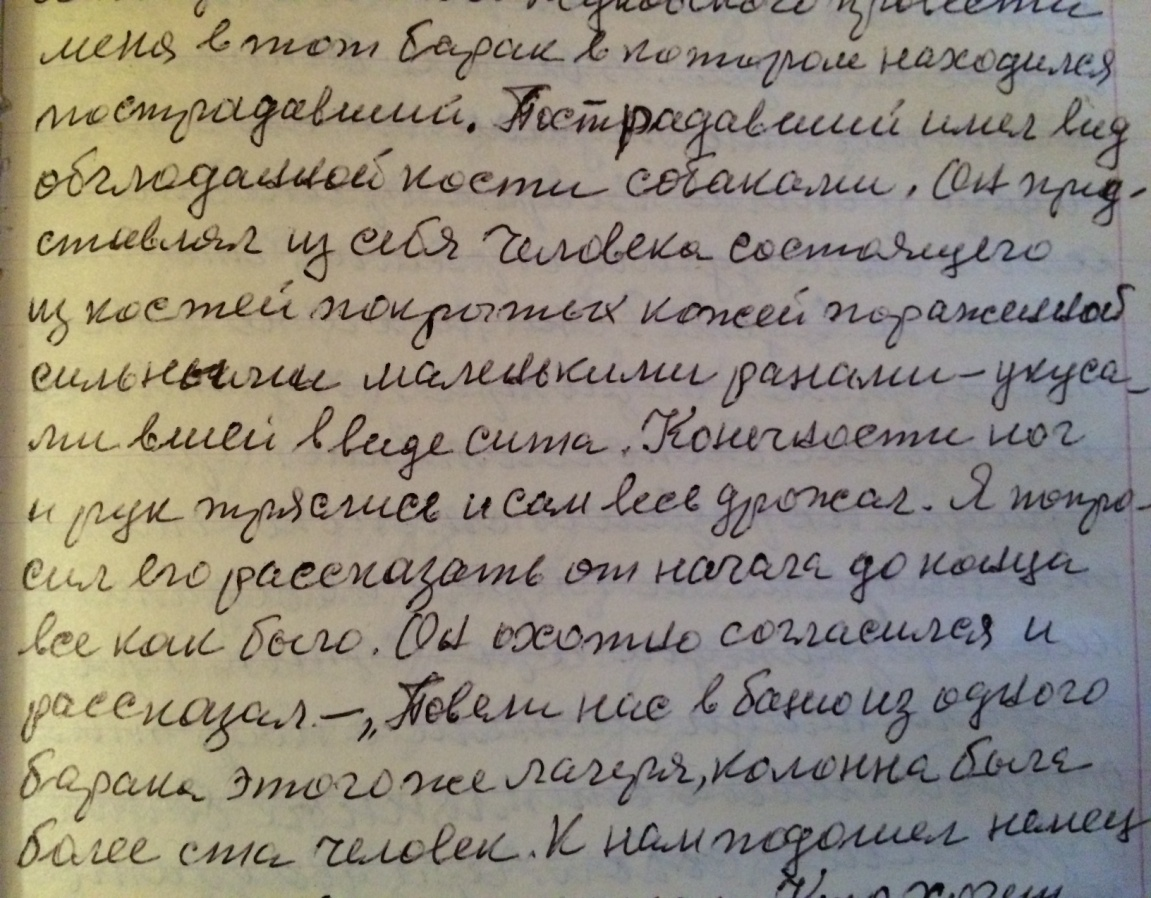 провести
меня в тот барак в котором находился
пострадавший. Пострадавший имел вид
обглоданной кости собаками. Он пред-
ставлял из себя человека состоящего
из костей покрытых кожей пораженной
сильными маленькими ранами – укуса-
ми вшей в виде сита. Конечности ног
и рук тряслись и сам весь дрожал. Я попро-
сил его рассказать от начала до конца
все как было. Он охотно согласился и
рассказал – „Повели нас в баню из одного
барака этого же лагеря, колонна была
более ста человек. К нам подошел немец